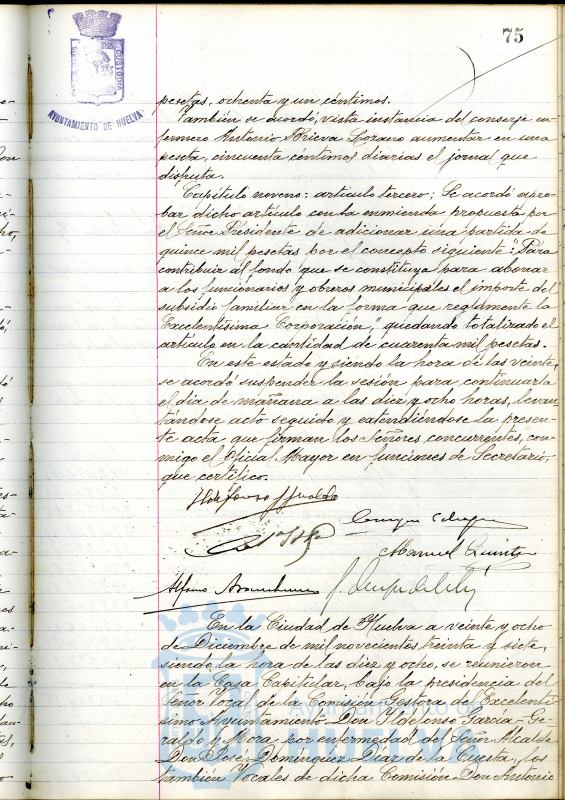 75
CUSTODIA
AYUNTAMIENTO DE HUELVA
pesetas, ochenta y un céntimos.
También se acordó, vista instancia del conserje en-
fermero Antonio Brieva Lozano aumentar en una
peseta, cincuenta céntimos diarias el jornal que
disfruta.
Capítulo noveno: artículo tercero; Se acordó apro-
bar dicho artículo con la enmienda propuesta por
el Señor Presidente de adicionar una partida de
quince mil pesetas por el concepto siguiente: "Para
contribuir al fondo que se constituya para abonar
a los funcionarios y obreros municipales el importe del
subsidio familiar en la forma que reglamente la
Excelentísima Corporación", quedando totalizado el
artículo en la cantidad de cuarenta mil pesetas.
En este estado y siendo la hora de las veinte,
se acordó suspender la sesión para continuarla
el día de mañana a las diez y ocho horas, levan-
tándose acto seguido y extendiéndose la presen-
te acta que firman los Señores concurrentes, con-
migo el Oficial Mayor en funciones de Secretario,
que certifico.
Ildefonso Gª Geraldo
Manuel Quintero
Alfonso
En la Ciudad de Huelva a veinte y ocho
de Diciembre de mil novecientos treinta y siete,
siendo la hora de las diez y ocho, se reunieron
en la Casa Capitular, bajo la presidencia del
Señor Vocal de la Comisión Gestora del Excelentí-
simo Ayuntamiento Don Ildefonso García Ge-
raldo y Mora por enfermedad del Señor Alcalde
Don José Domínguez Díaz de la Cuesta, los
también Vocales de dicha Comisión Don Antonio
Ayuntamiento de
HUELVA